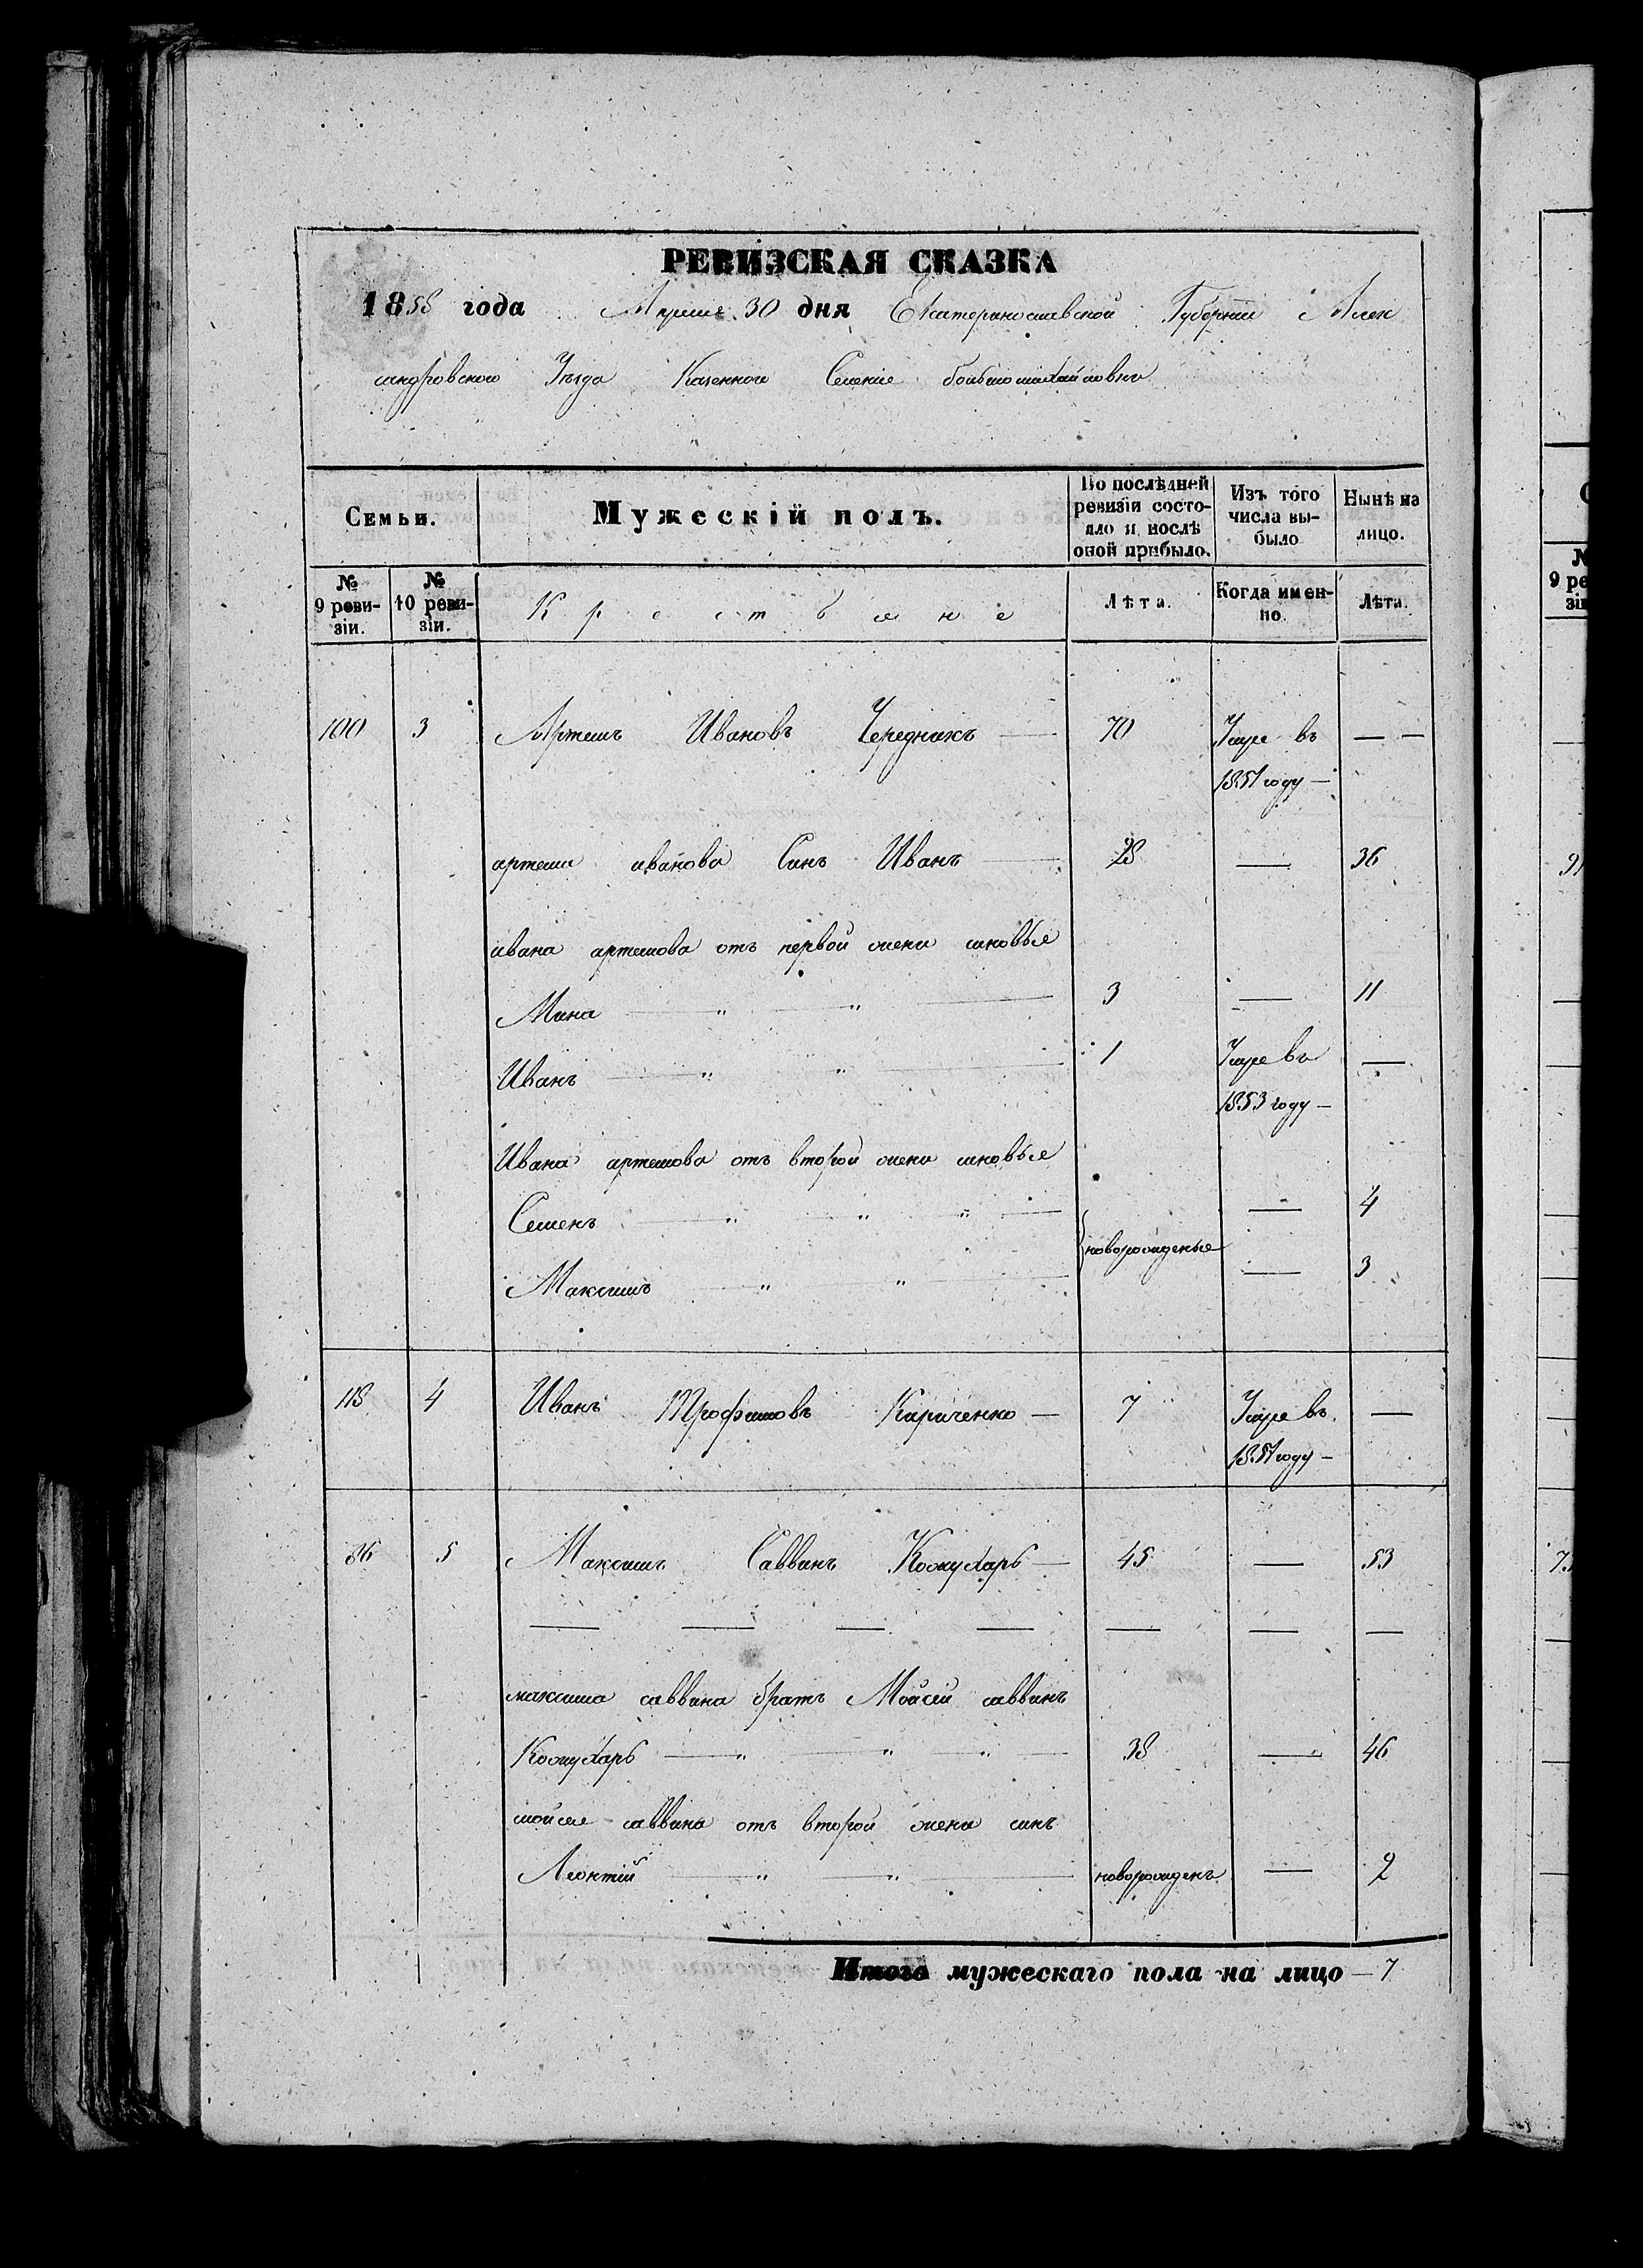 РЕВИЗСКАЯ СКАЗКА
1858 года Апреля 30 дня Екатеринославской Губернии Алек
сандровского Уезда Казенного Селения большомихайловки
Семьи. Мужескій полъ. По послѣдней ревизіи состо- яло и послѣ оной прибыло. Изъ того числа вы- было Нынѣ на лицо.
№ 9 реви- зіи. № 10 реви- зіи. Крестьяне Лѣта. Когда имен- но. Лѣта.
100 3 Артемъ Ивановъ Чередникъ — 70 Умре въ — —
1851 году —
артема иванова Синъ Иванъ — 28 — 36
ивана артемова отъ первой жени синовье
Мина — " — " — 3 — 11
Иванъ — " — " — 1 Умре въ —
1853 году —
Ивана артемова отъ второй жени синовье
Семенъ — " — " — " — — 4
новорожденые
Максимъ — " — " — — 3
118 4 Иванъ Трофимовъ Кириченко — 7 Умре въ —
1851 году —
86 5 Максимъ Саввинъ Кожухарь — 45 — 53
— — — — — — —
максима саввина братъ Мойсей саввинъ
Кожухарь — " — " — " — 38 — " 46
мойсея саввина отъ второй жени синъ
Леонтій — " — " — новорожденъ — 2
Итого мужескаго пола на лицо — 7
№
9 ре
зі
91
7